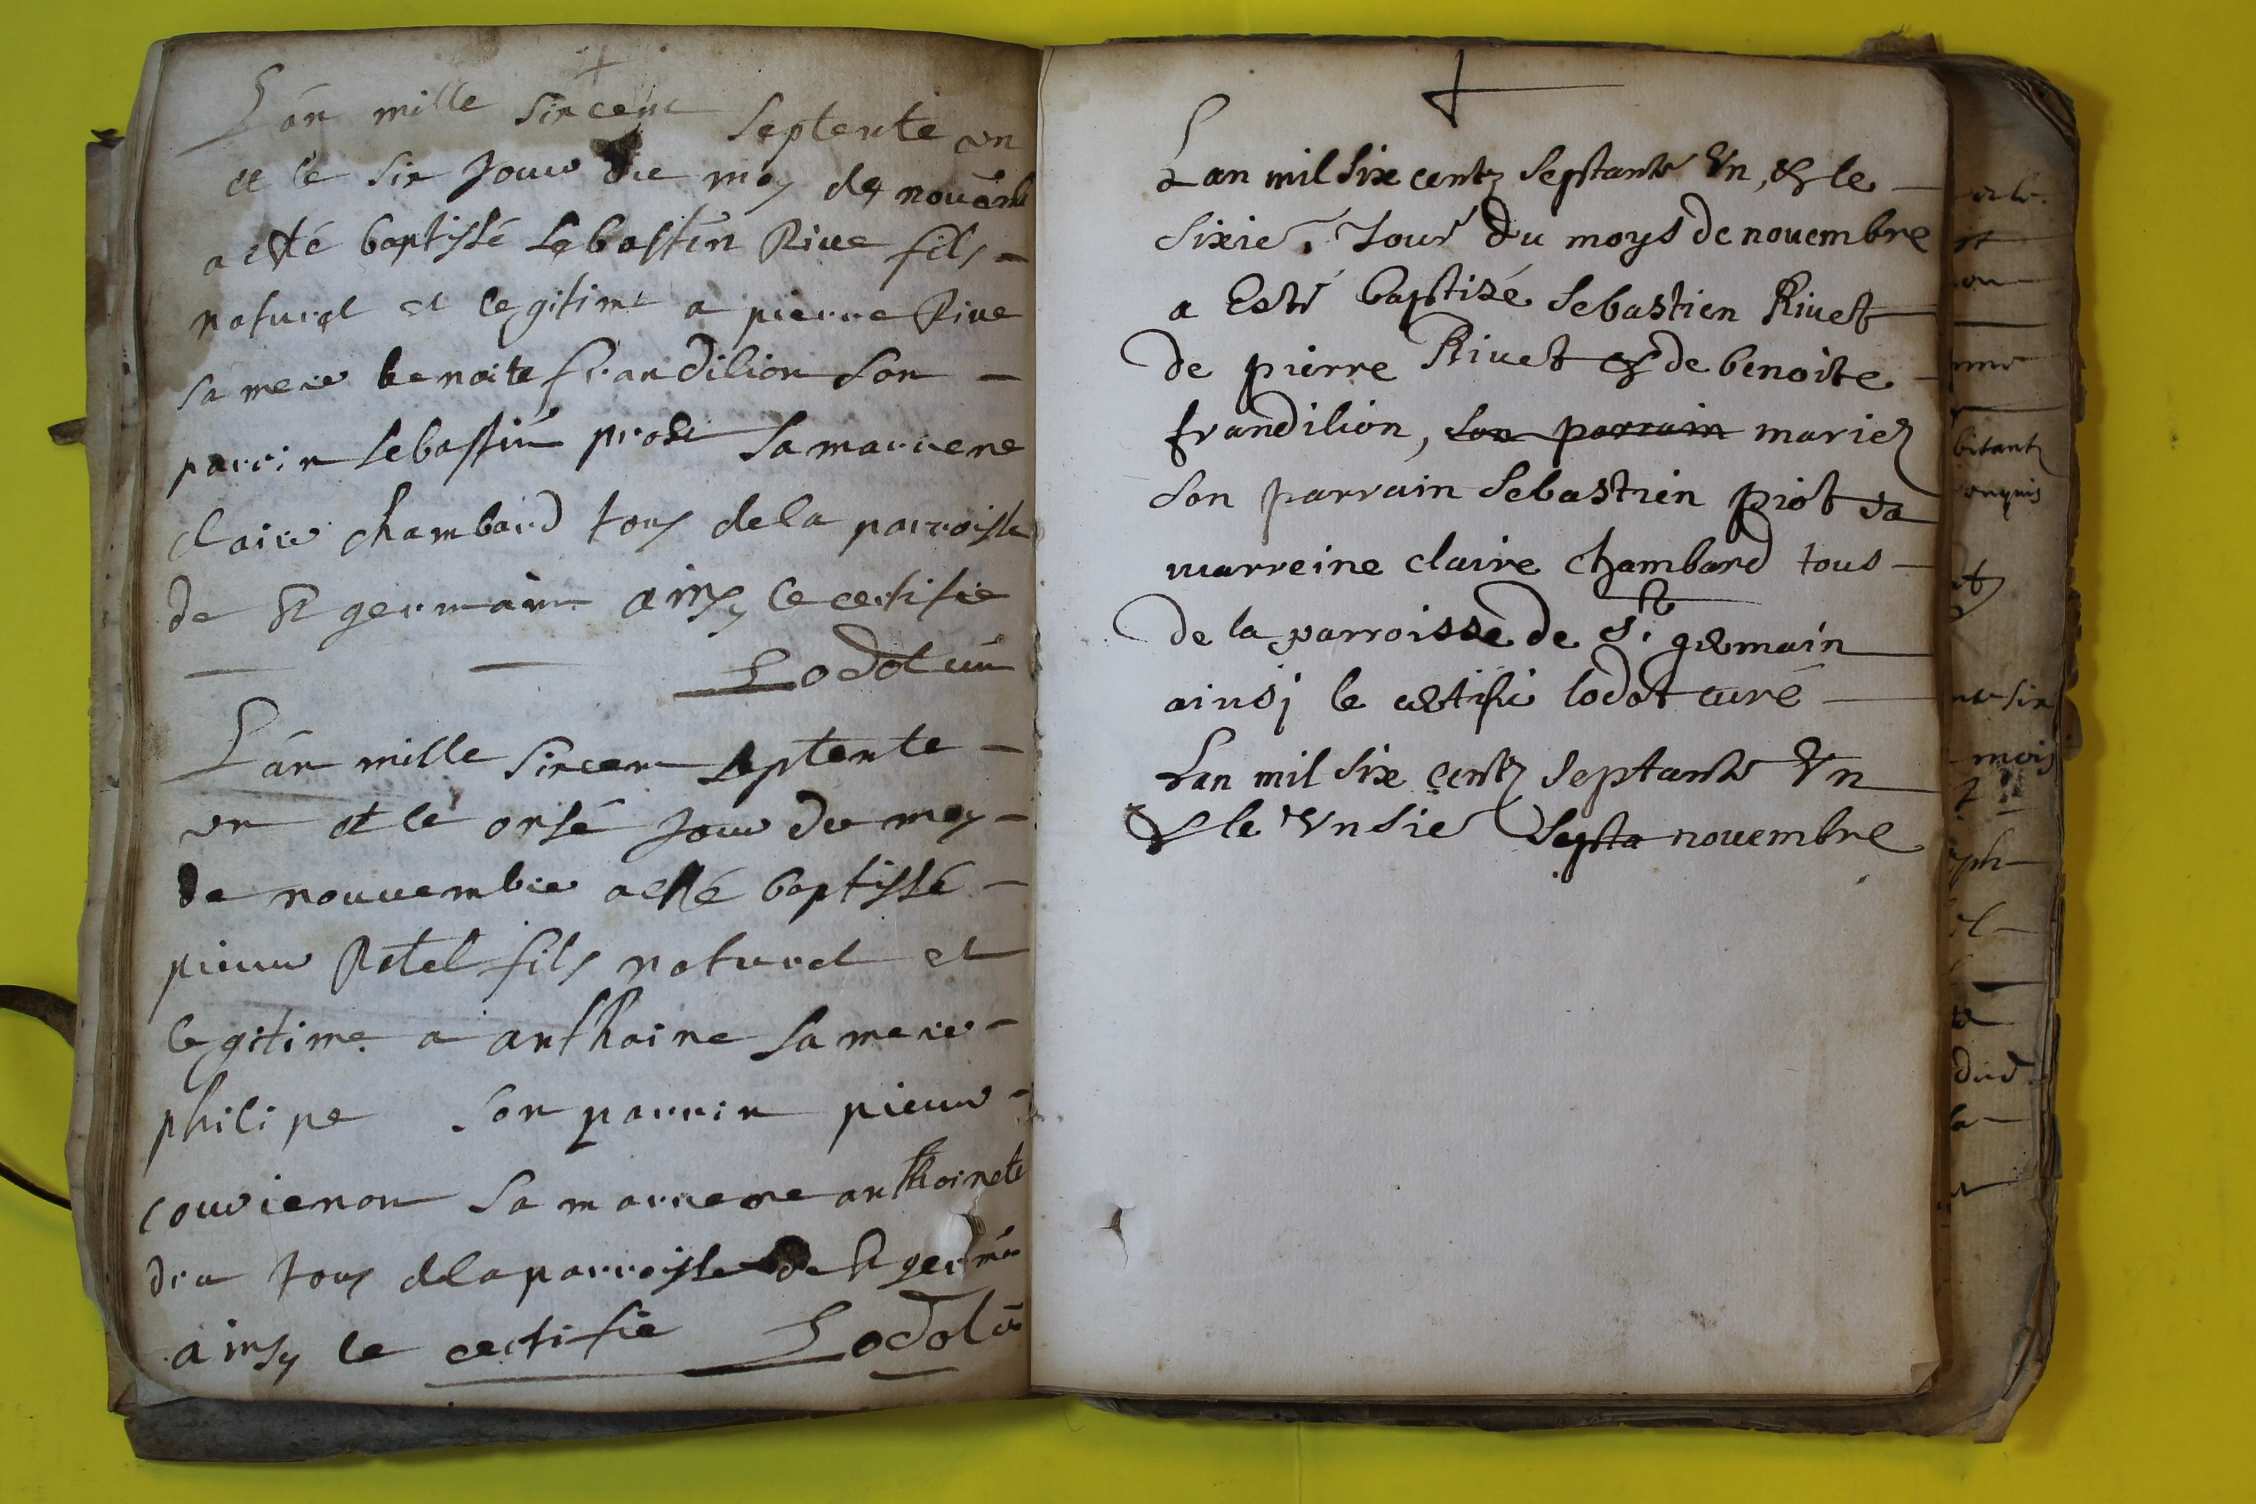 Lan mille sixcent septente un
et le six jour du moy de novemb
a esté baptissé sebastien Rive fils
naturel et legitime a pierre Rive
sa mere benoite frandilion son
parrin sebastien prost sa marrene
claire chambard tous de la parroisse
de st germain ainsy le certifie
Lodot
Lan mille sixcent septente
un et le onsé jour du moy
de nouvembre a esté baptissé
pierre Ratel fils naturel et
legitime a anthoine sa mere
philipe son parrin pierre
couvienon sa marrene anthoinete
dru tous de la parroisse de st germain
ainsy le certifie Lodot
Lan mil six centz septante Un, & le
sixie. Jour du moys de novembre
a Esté baptizé sebastien Rivet
de pierre Rivet & de benoite
frandilion, son parrain mariez
son parrain sebastien piot sa
marreine claire chambard tous
de la parroisse de St germain
ainsj le certifi lodot curé
Lan mil six centz septante Un
& le Unsie septa novembre
bitantz
mois